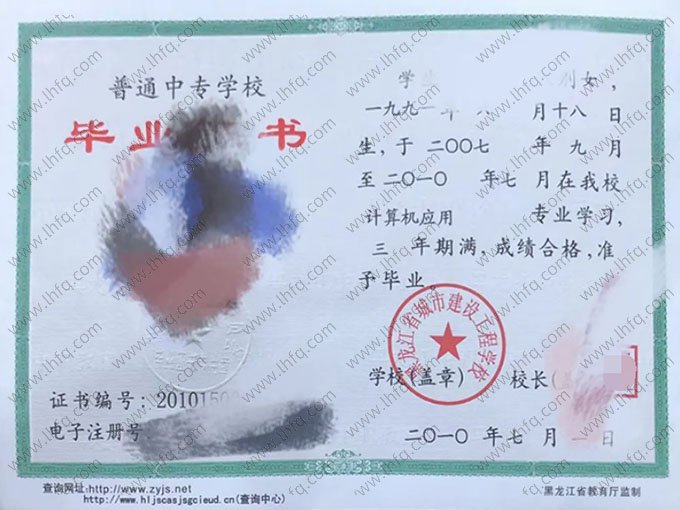 普通中专学校
毕业 书
证书编号：2010150
电子注册号
学生 女，
一九九一年 八 月十八日
生，于 二〇〇七 年 九 月
至二〇一〇 年七 月在我校
计算机应用 专业学习，
三 年期满，成绩合格，准
予毕业。
黑龙江省城市建设工程学校
学校(盖章) 校长(
二〇一〇 年七月 日
查询网址:http://www.zyjs.net
http://www.hljscasjsgcieud.cn(查询中心)
黑龙江省教育厅监制
www.lhfq.com